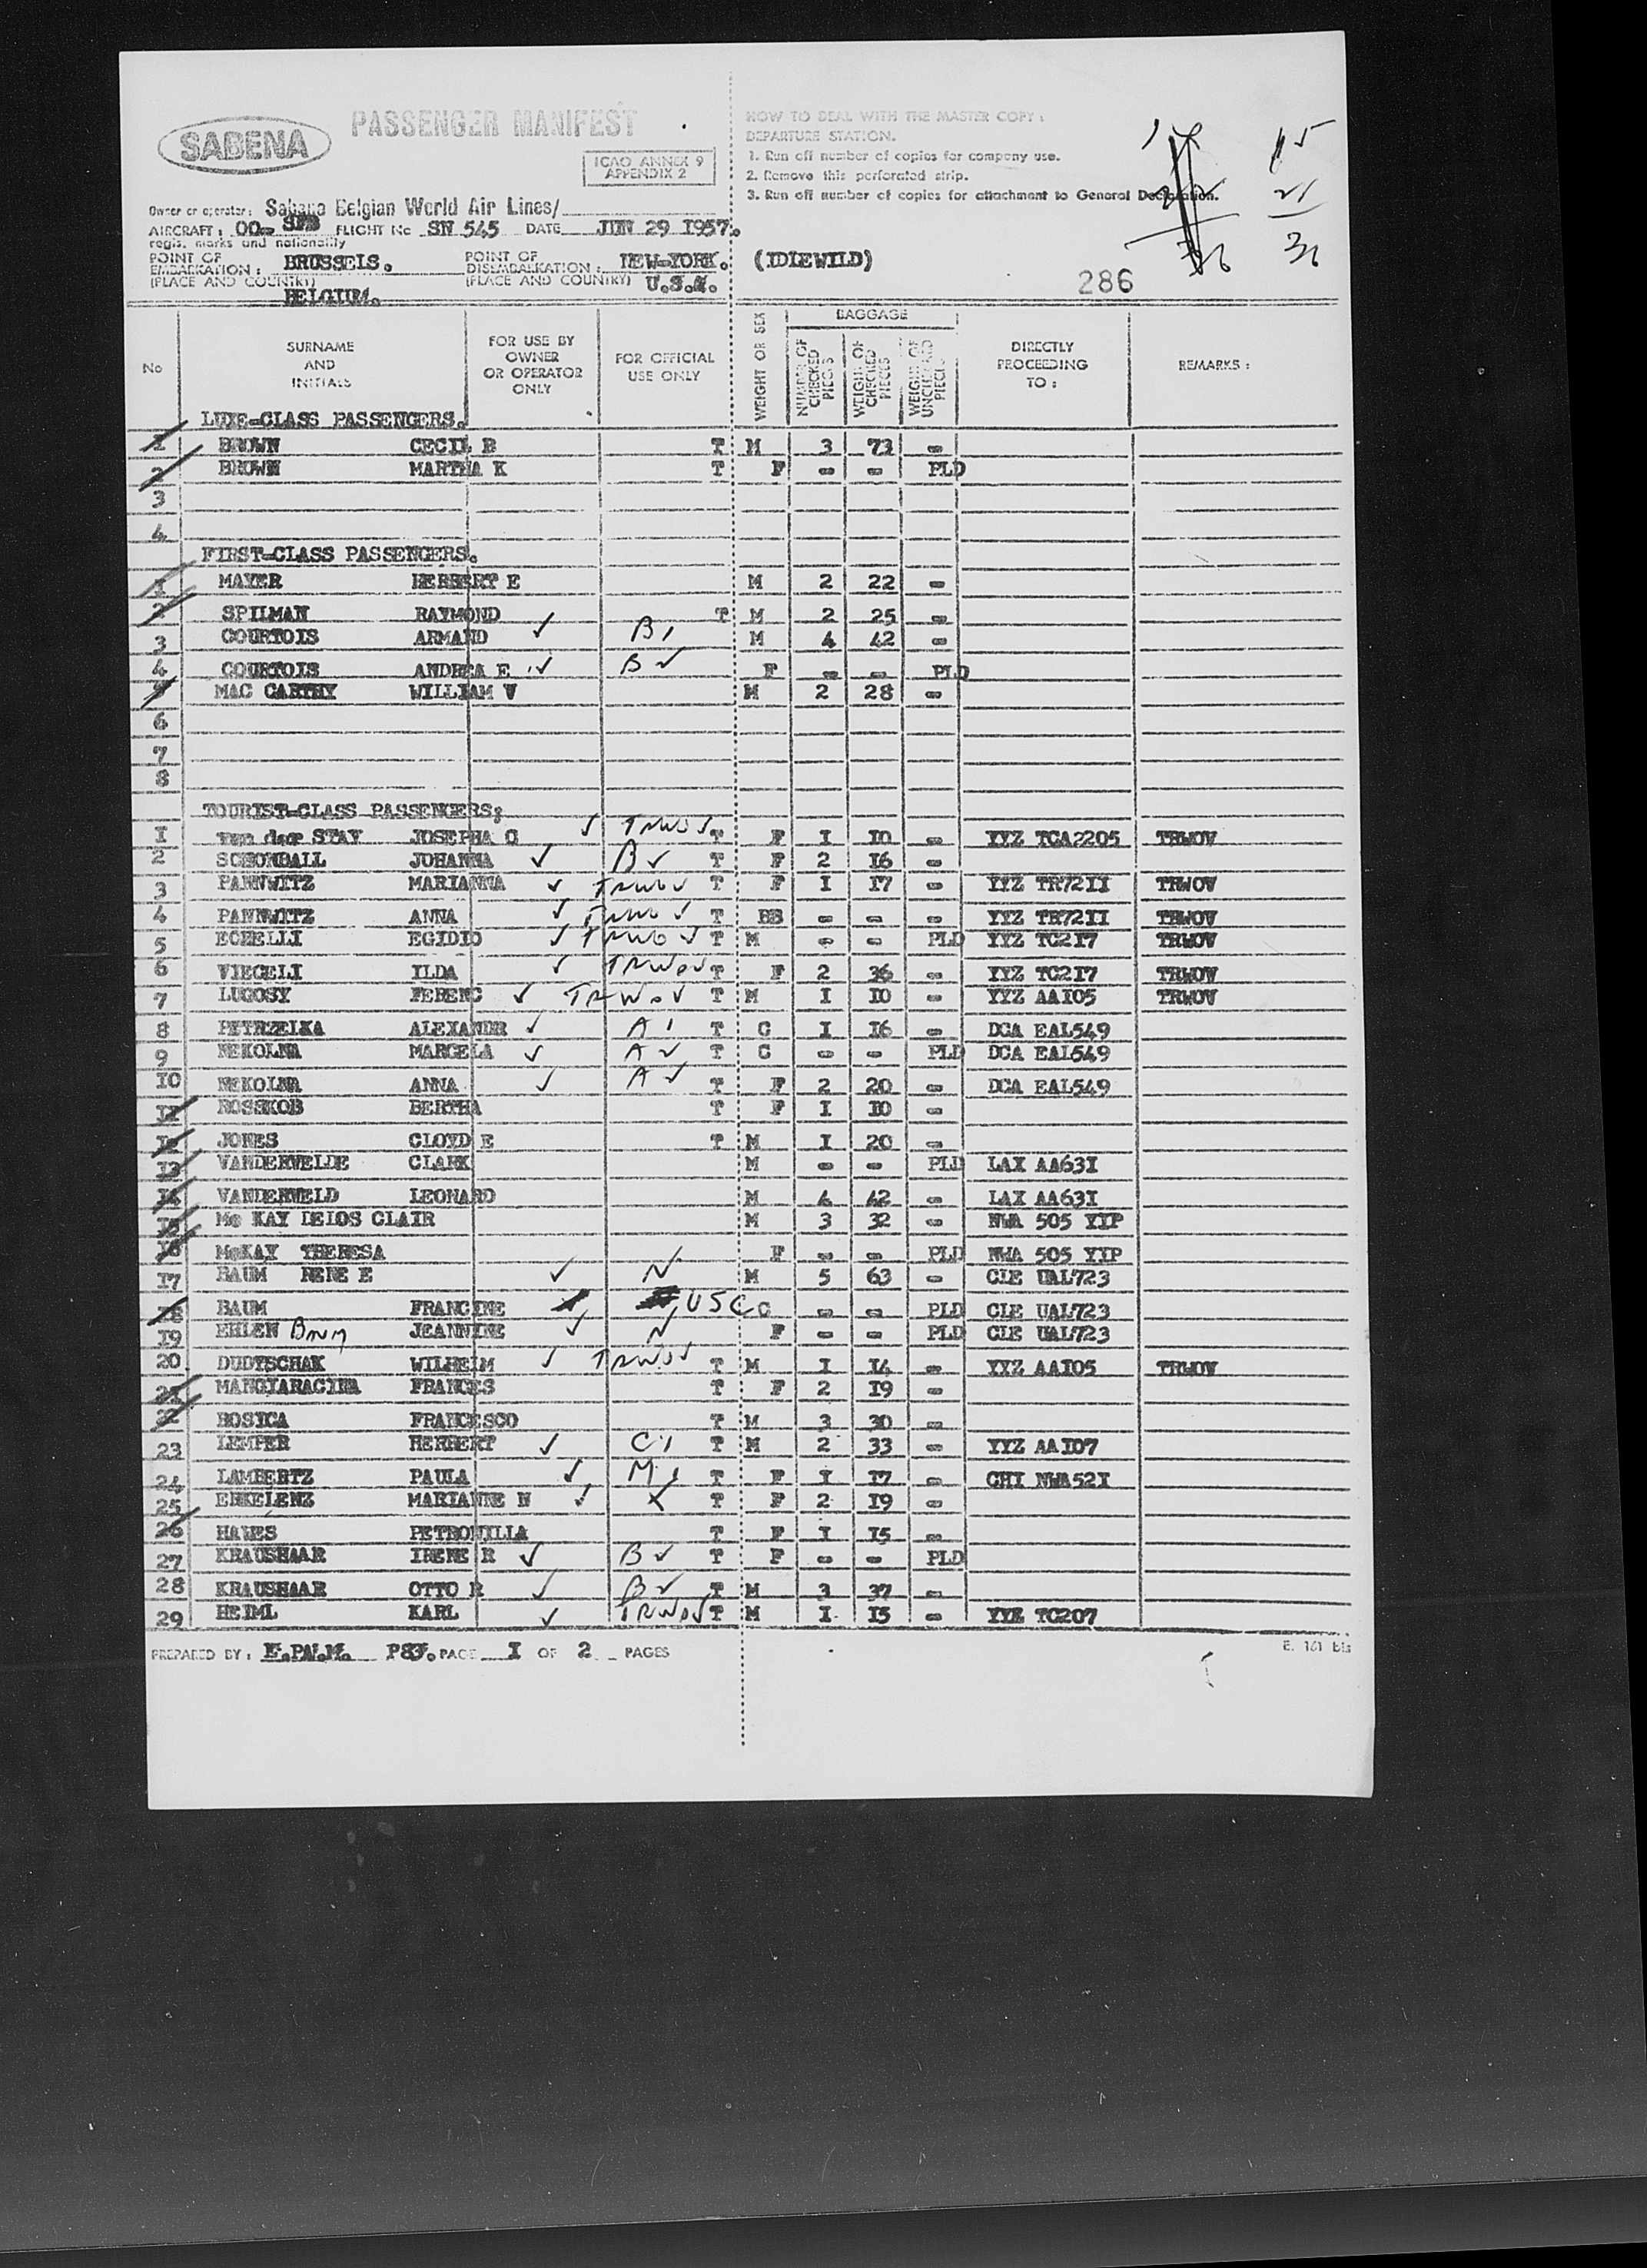 SABENA
PASSENGER MANIFEST
ICAO ANNEX 9
APPENDIX 2
HOW TO DEAL WITH THE MASTER COPY :
DEPARTURE STATION.
1. Run off number of copies for company use.
2. Remove this perforated strip.
3. Run off number of copies for attachment to General Declaration.
15
21
36
Owner or operator: Sabena Belgian World Air Lines/
AIRCRAFT : OO- SFB FLIGHT No SN 545 DATE JUN 29 1957.
regis. marks and nationality
POINT OF EMBARKATION : BRUSSELS. POINT OF DISEMBARKATION : NEW-YORK. (IDLEWILD)
(PLACE AND COUNTRY) BELGIUM. (PLACE AND COUNTRY) U.S.A.
286
No SURNAME AND INITIALS FOR USE BY OWNER OR OPERATOR ONLY FOR OFFICIAL USE ONLY WEIGHT OR SEX BAGGAGE NUMBER OF CHECKED PIECES WEIGHT OF CHECKED PIECES WEIGHT OF UNCHECKED PIECES DIRECTLY PROCEEDING TO : REMARKS :
LUXE-CLASS PASSENGERS.
1 BROWN CECIL B T M 3 73 -
2 BROWN MARTHA K T F - - PLD
3
4
FIRST-CLASS PASSENGERS.
1 MAYER HERBERT E M 2 22 -
2 SPILMAN RAYMOND T M 2 25 -
3 COURTOIS ARMAND ✓ B M 4 42 -
4 COURTOIS ANDREA E ✓ B ✓ F - - PLD
5 MAC CARTHY WILLIAM V M 2 28 -
6
7
8
TOURIST-CLASS PASSENGERS;
I van der STAY JOSEPHA C ✓ TRWOV T F I I0 - YYZ TCA2205 TRWOV
2 SCHONBALL JOHANNA ✓ B ✓ T F 2 I6 -
3 PANNWITZ MARIANNA ✓ TRWOV T F I I7 - YYZ TR72II TRWOV
4 PANNWITZ ANNA ✓ TRWO ✓ T BB - - - YYZ TR72II TRWOV
5 ECHELLI EGIDIO ✓ TRWO ✓ T M - - PLD YYZ TC2I7 TRWOV
6 VIECELI ILDA ✓ TRWOV T F 2 36 - YYZ TC2I7 TRWOV
7 LUGOSY FERENC ✓ TRWOV T M I I0 - YYZ AAI05 TRWOV
8 PETRZELKA ALEXANDR ✓ A T C I I6 - DCA EAL549
9 NEKOLNA MARCELA ✓ A ✓ T C - - PLD DCA EAL549
I0 NEKOLNA ANNA ✓ A ✓ T F 2 20 - DCA EAL549
II ROSSKOB BERTHA T F I I0 -
I2 JONES CLOYD E T M I 20 -
I3 VANDERVELDE CLARK M - - PLD LAX AA63I
I4 VANDERVELD LEONARD M 4 42 - LAX AA63I
I5 Mc KAY DELOS CLAIR M 3 32 - NWA 505 YIP
I6 McKAY THERESA F - - PLD NWA 505 YIP
I7 BAUM RENE E ✓ N M 5 63 - CLE UAL723
I8 BAUM FRANCINE USC C - - PLD CLE UAL723
I9 EHLEN BAUM JEANNINE ✓ N F - - PLD CLE UAL723
20 DUDTSCHAK WILHELM ✓ TRWOV T M I I4 - YYZ AAI05 TRWOV
2I MANGIARACINA FRANCES T F 2 I9 -
22 BOSICA FRANCESCO T M 3 30 -
23 LEMPER HERBERT ✓ C T M 2 33 - YYZ AAI07
24 LAMBERTZ PAULA ✓ M T F I I7 - CHI NWA52I
25 ERKELENZ MARIANNE N ✓ X T F 2 I9 -
26 HAWES PETRONILLA T F I I5 -
27 KRAUSHAAR IRENE R ✓ B ✓ T F - - PLD
28 KRAUSHAAR OTTO R ✓ B ✓ T M 3 37 -
29 HEIML KARL ✓ TRWOV T M I I5 - YYZ TC207
PREPARED BY : E.PALM. PSJ. PAGE I OF 2 PAGES
E. 161 bis